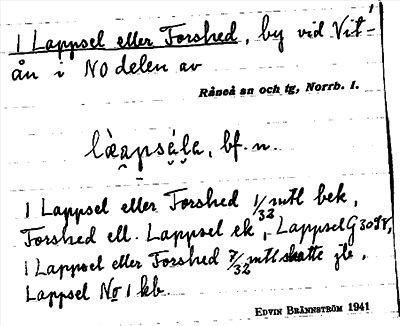 1 Lappsel eller Forshed, by vid Vit-
ån i NO delen av
Råneå sn och tg, Norrb. l.
bf. n.
1 Lappsel eller Forshed 1/32 mtl bek,
Forshed ell. Lappsel ek, Lappsel G 3098,
1 Lappsel eller Forshed 7/32 mtl skatte jb,
Lappsel No 1 kb.
EDVIN BRÄNNSTRÖM 1941